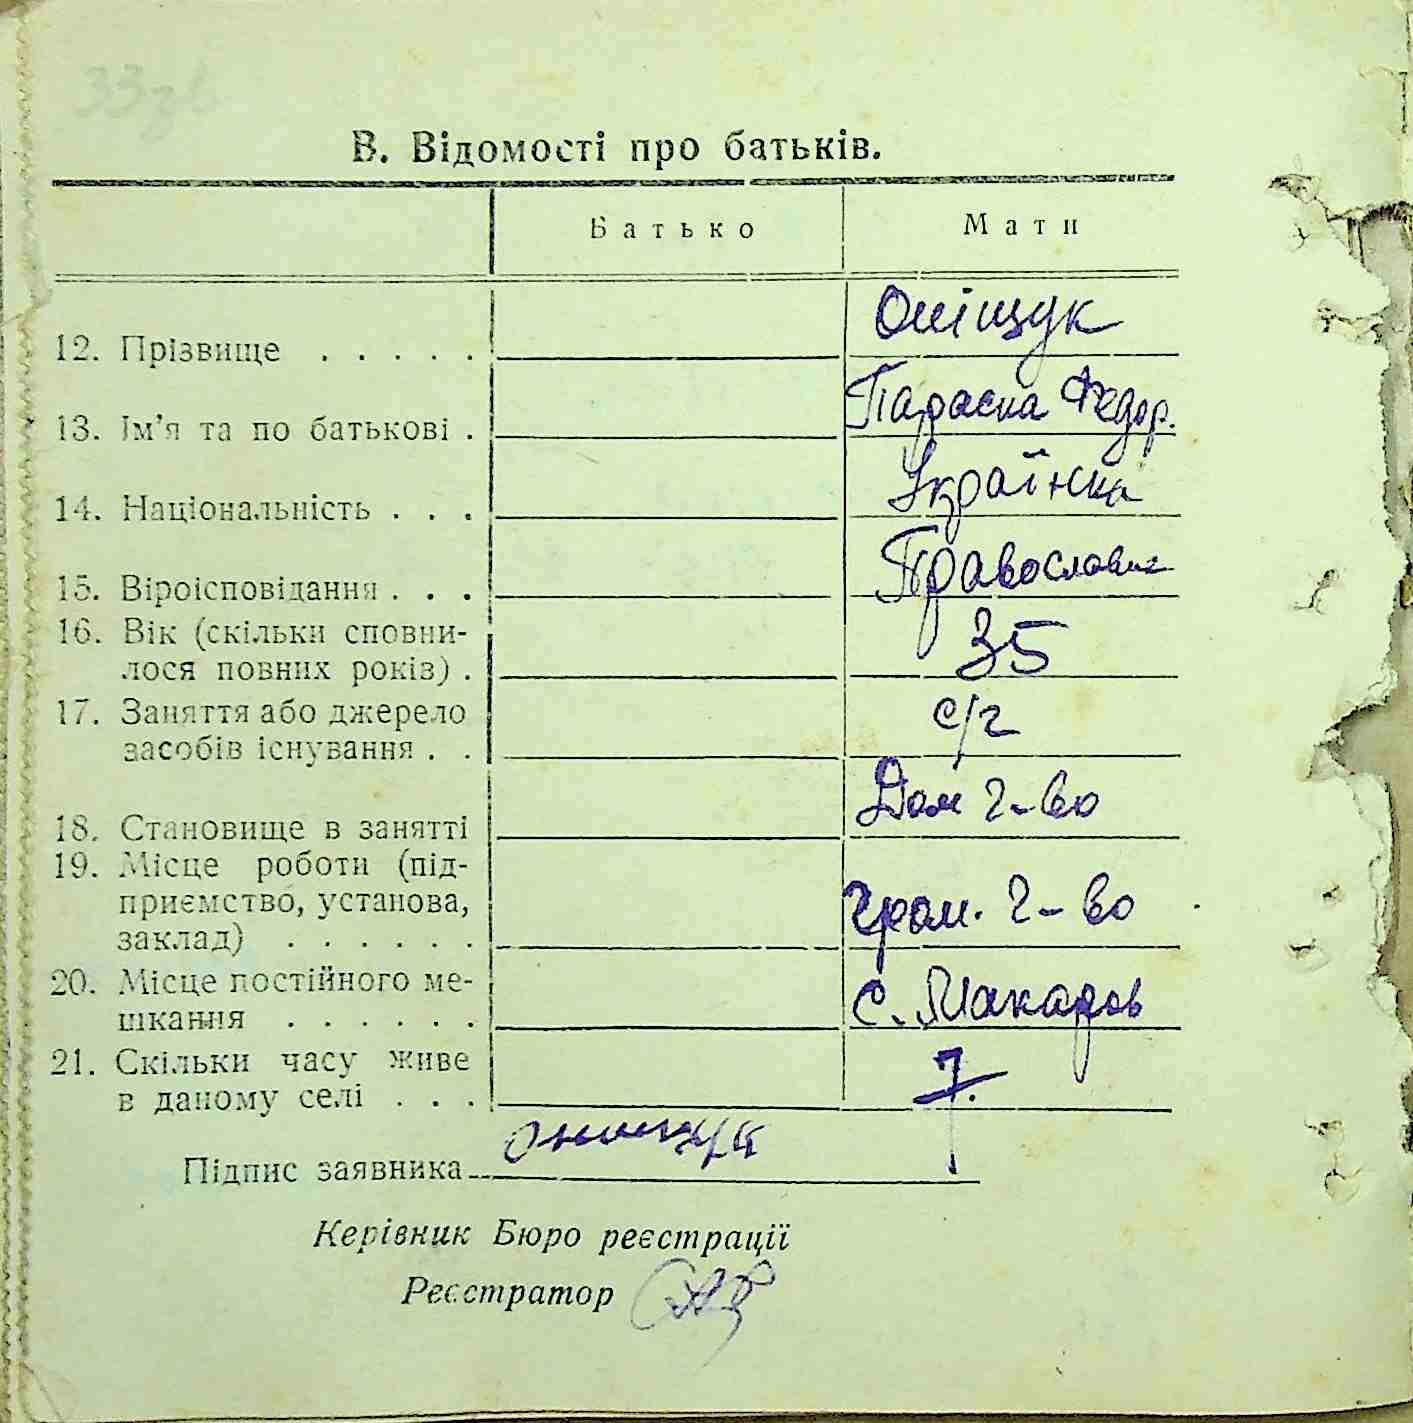 33зв
В. Відомості про батьків.
Батько Мати
12. Прізвище . . . . . Оніщук
13. Ім'я та по батькові . Параска Федор.
14. Національність . . . Українка
15. Віроісповідання . . . Православна
16. Вік (скільки сповни-
лося повних років) . 35
17. Заняття або джерело
засобів існування . . с/г
18. Становище в занятті Дом г-во
19. Місце роботи (під-
приємство, установа,
заклад) . . . . . . Гром. г-во
20. Місце постійного ме-
шкання . . . . . . с. Макарів
21. Скільки часу живе
в даному селі . . . 7.
Підпис заявника Онищук
Керівник Бюро реєстрації
Реєстратор